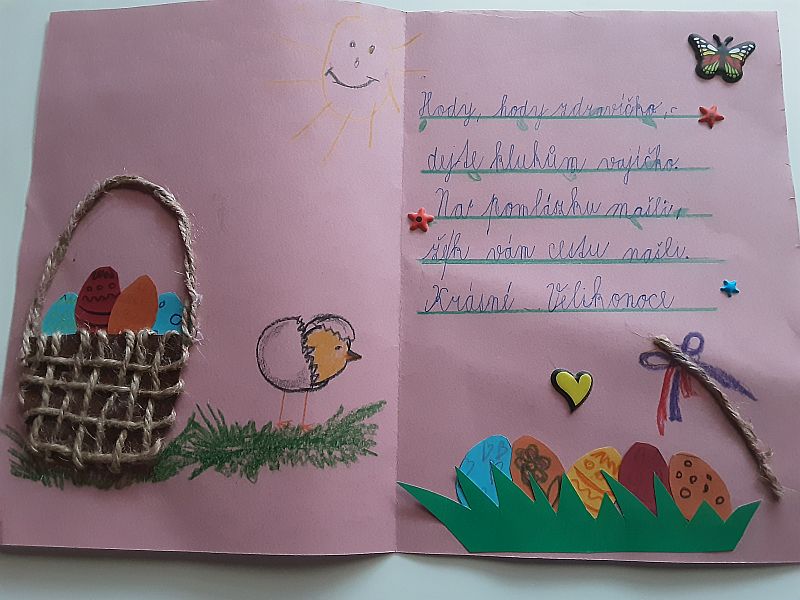 Hody, hody zdravíčko,
dejte klukům vajíčko.
Na pomlázku mašli,
vám cestu našli.
Krásné Velikonoce